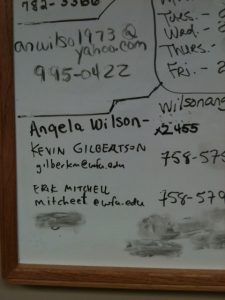 782-3366
anwilso1973@
yahoo.com
995-0422
Tues. -
Wed. -
Thurs. -
Fri. -
Wilsonang
Angela Wilson- x2455
KEVIN GILBERTSON 758-575
gilberkm@wfu.edu
ERIK MITCHELL 758-579
mitcheet@wfu.edu